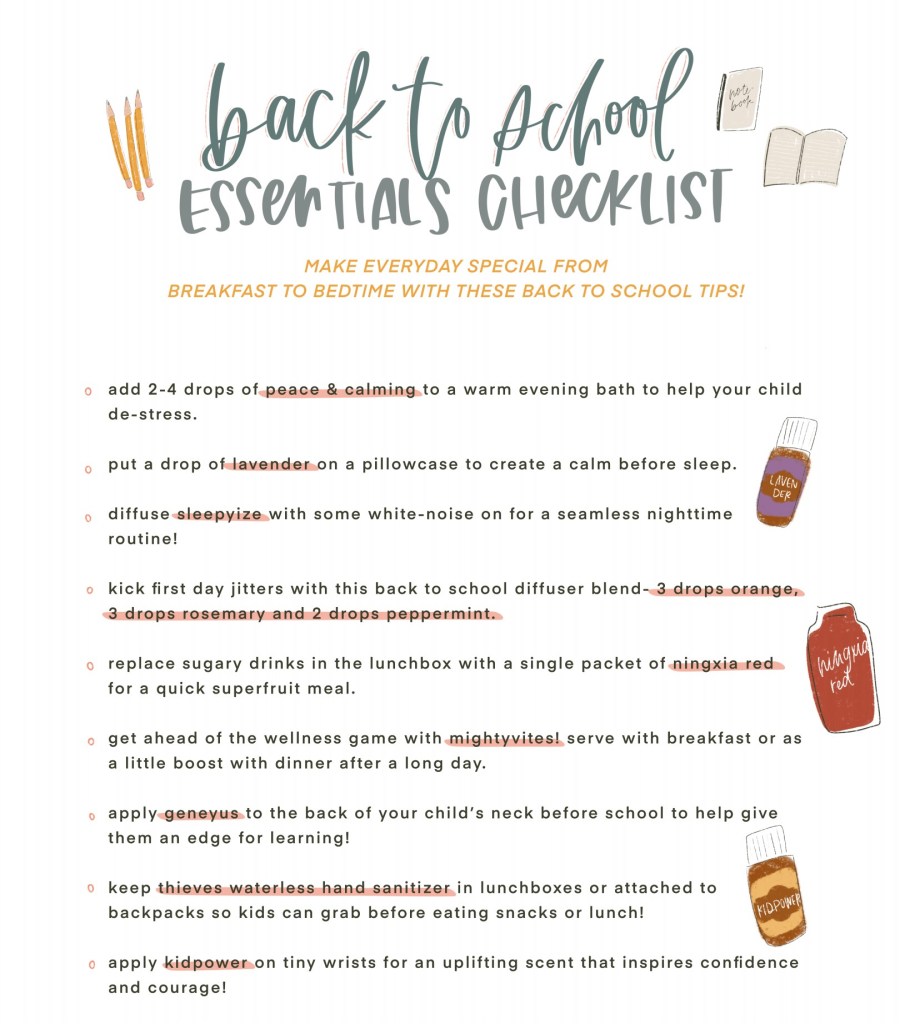 back to school
ESSENTIALS CHECKLIST
note
book
MAKE EVERYDAY SPECIAL FROM
BREAKFAST TO BEDTIME WITH THESE BACK TO SCHOOL TIPS!
add 2-4 drops of peace & calming to a warm evening bath to help your child
de-stress.
put a drop of lavender on a pillowcase to create a calm before sleep.
LAVEN
DER
diffuse sleepyize with some white-noise on for a seamless nighttime
routine!
kick first day jitters with this back to school diffuser blend- 3 drops orange,
3 drops rosemary and 2 drops peppermint.
replace sugary drinks in the lunchbox with a single packet of ningxia red
for a quick superfruit meal.
ningxia
red
get ahead of the wellness game with mightyvites! serve with breakfast or as
a little boost with dinner after a long day.
apply geneyus to the back of your child's neck before school to help give
them an edge for learning!
keep thieves waterless hand sanitizer in lunchboxes or attached to
backpacks so kids can grab before eating snacks or lunch!
KIDPOWER
apply kidpower on tiny wrists for an uplifting scent that inspires confidence
and courage!